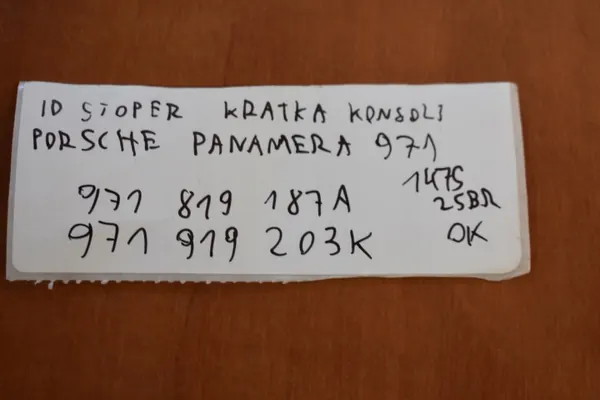 ID STOPER KRATKA KONSOLI
PORSCHE PANAMERA 971
1475
971 819 187A 25BR
971 919 203K OK